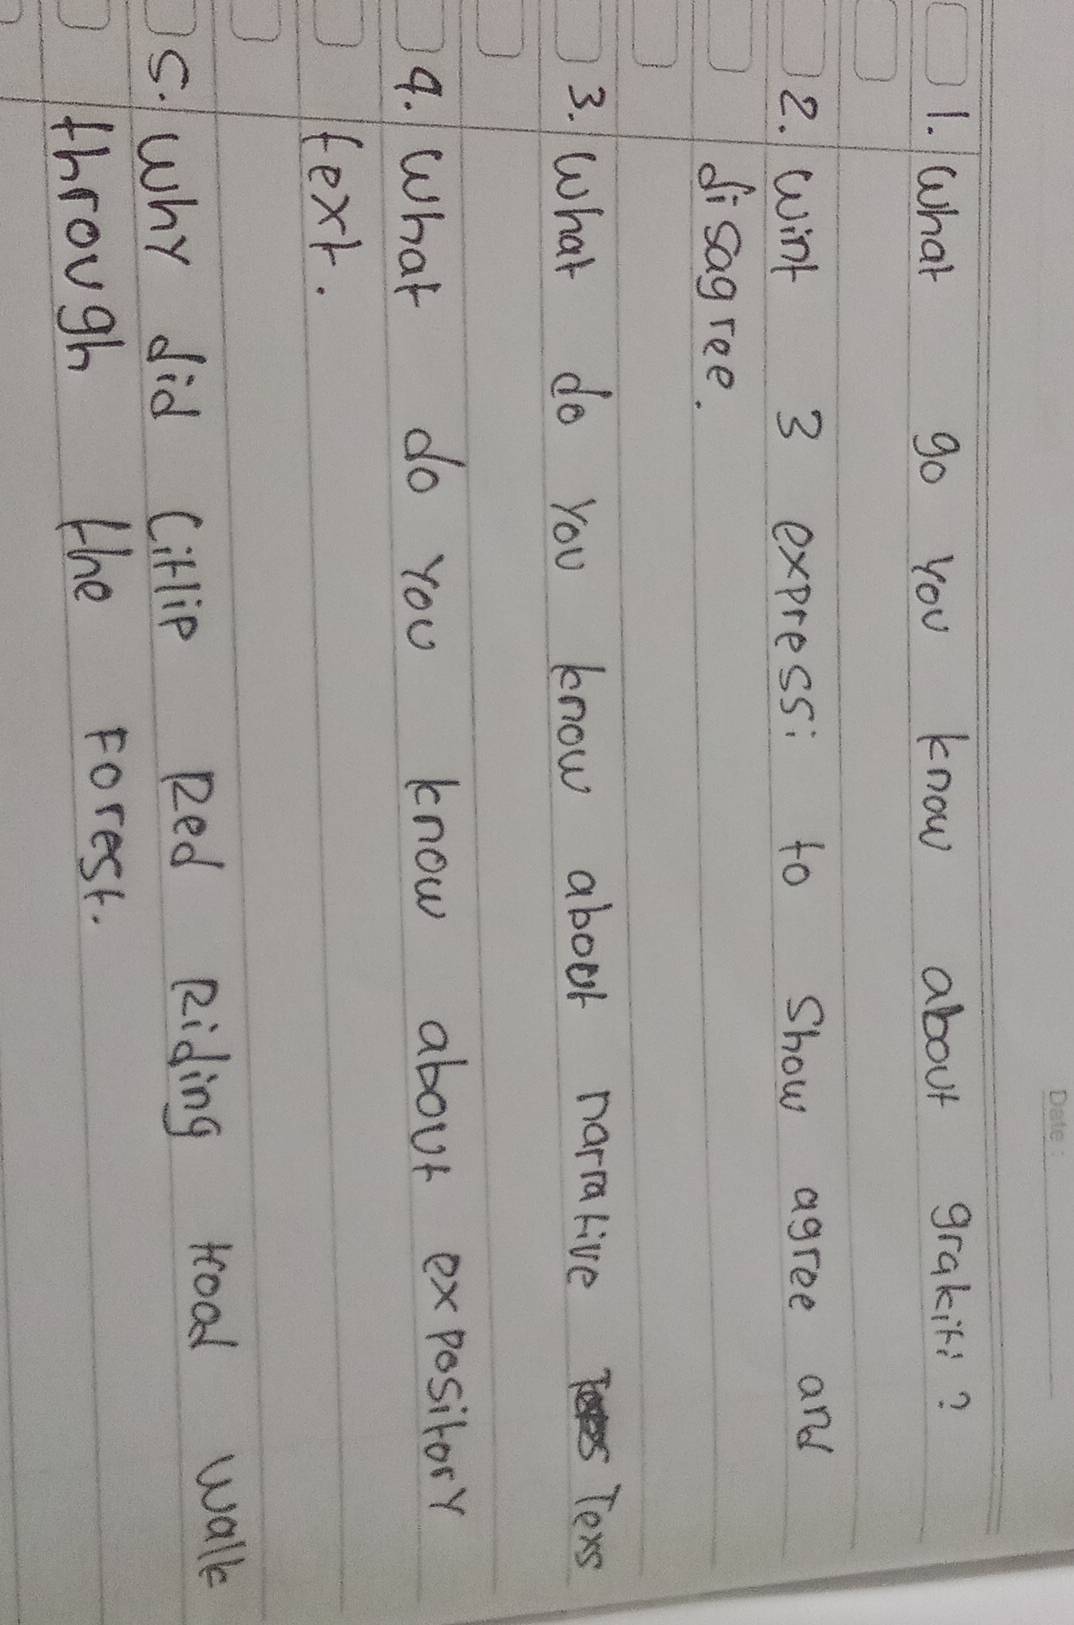 Date:
1. What go You know about grakiti?
2. Wint 3 express: to Show agree and
disagree.
3. What do You know about narrative Texs
4. What do You know about expository
text.
5. Why did Citlip Red Riding Hood walk
through the Forest.